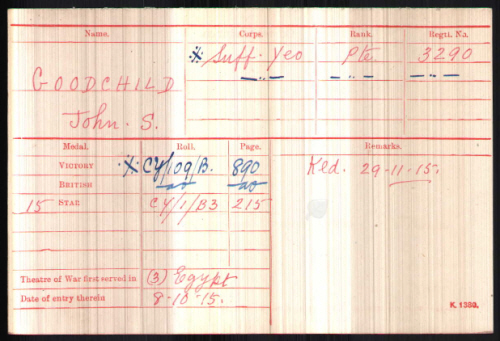 Name. Corps. Rank. Regtl. No.
※ Suff. Yeo Pte. 3290
GOODCHILD — „ — — „ — — „ —
John. S.
Medal. Roll. Page. Remarks.
VICTORY ※ CY/109/B. 890 Ked. 29-11-15.
BRITISH — do — — do —
15 STAR CY/1/B3 215
Theatre of War first served in (3) Egypt
Date of entry therein 8-10-15.
K. 1380.